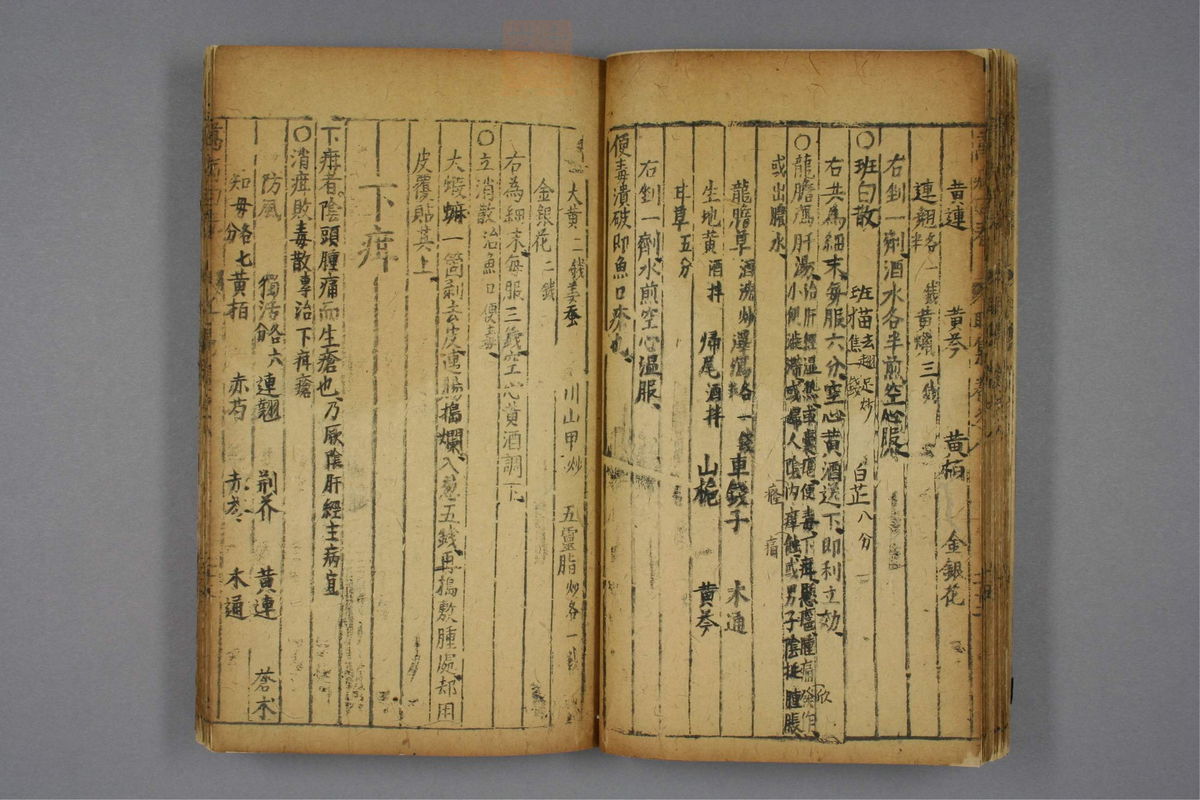 黄連 黄芩 黄栢 金銀花
連翹各一錢半 黄 三錢
右剉一劑酒水各半煎空心服
〇班白散 班猫去翅足炒焦一錢 白芷八分
右共為細末每服六分空心黄酒送下即利立効
〇龍膽瀉肝湯治肝經濕熱或囊癰便毒下疳懸癰腫痛焮作
小便澁滯或婦人陰內痒蝕或男子陰挺腫脹
或出膿水
龍膽草酒 炒 澤瀉各一錢 車錢子 木通
生地黄酒拌 歸尾酒拌 山梔 黄芩
甘草五分
右剉一劑水煎空心溫服
便毒潰破即魚口
大黄二錢 姜蚕 川山甲炒 五靈脂炒各一錢
金銀花二錢
右為細末每服三錢空心黄酒調下
〇立消散治魚口便毒
大蝦蟆一箇剥去皮連腸搗爛入葱五錢再搗敷腫處却用
皮覆貼其上
下疳
下疳者陰頭腫痛而生瘡也乃厥陰肝經主病宜
〇消疳敗毒散專治下疳瘡
防風 獨活各六分 連翹 荆芥 黄連 蒼木
知母各七分 黄栢 赤芍 赤苓 木通